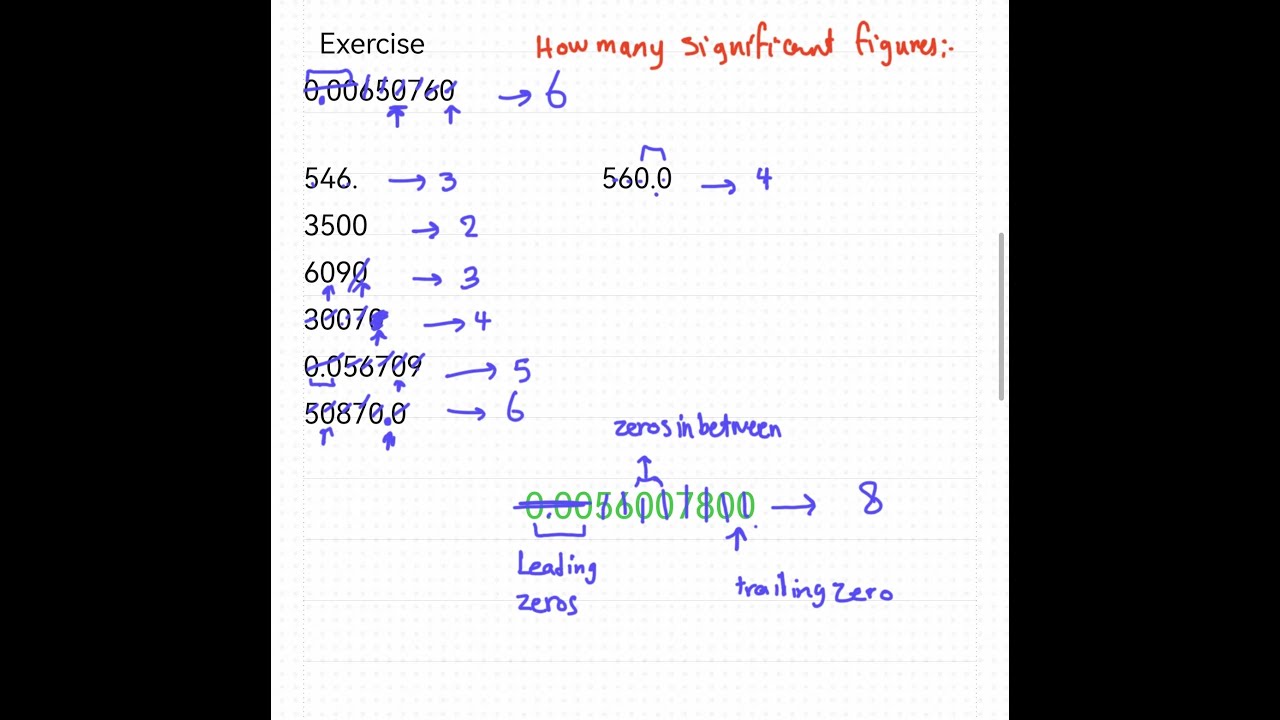 Exercise
How many significant figures:-
0.00650760 → 6
546. → 3
560.0 → 4
3500 → 2
6090 → 3
30070 → 4
0.056709 → 5
50870.0 → 6
zeros in between
0.0056007800 → 8
Leading
zeros
trailing zero